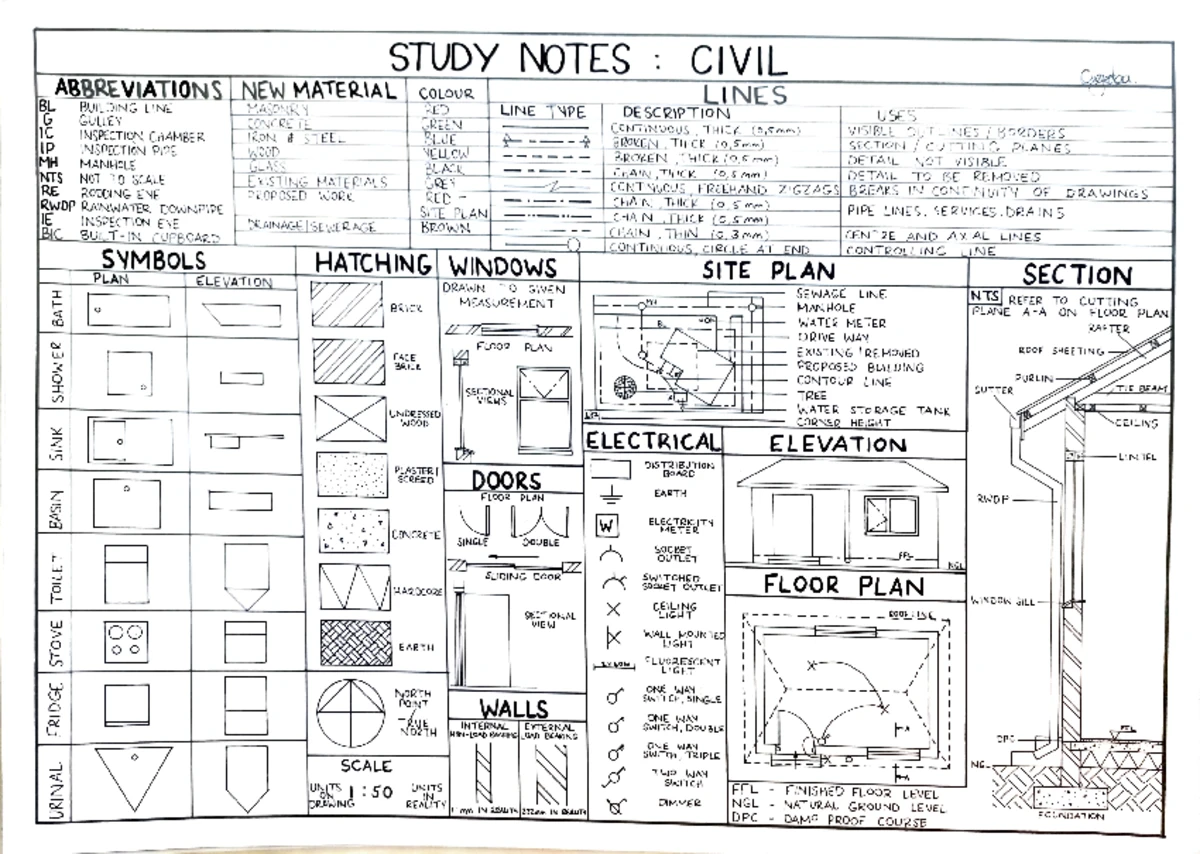 STUDY NOTES : CIVIL
ABBREVIATIONS
BL BUILDING LINE
G GULLEY
IC INSPECTION CHAMBER
IP INSPECTION PIPE
MH MANHOLE
NTS NOT TO SCALE
RE RODDING EYE
RWDP RAINWATER DOWNPIPE
IE INSPECTION EYE
BIC BUILT-IN CUPBOARD
NEW MATERIAL
MASONRY
CONCRETE
IRON & STEEL
WOOD
GLASS
EXISTING MATERIALS
PROPOSED WORK
DRAINAGE/SEWERAGE
COLOUR
RED
GREEN
BLUE
YELLOW
BLACK
GREY
RED -
SITE PLAN
BROWN
LINES
LINE TYPE
DESCRIPTION
CONTINUOUS, THICK (0,5mm)
BROKEN, THICK (0,5mm)
BROKEN, THICK (0,5mm)
CHAIN, THICK (0,5mm)
CONTNUOUS, FREEHAND ZIGZAGS
CHAIN, THICK (0,5mm)
CHAIN, THICK (0,5mm)
CHAIN, THIN (0,3mm)
CONTINUOUS, CIRCLE AT END
USES
VISIBLE OUTLINES / BORDERS
SECTION / CUTTING PLANES
DETAIL NOT VISIBLE
DETAIL TO BE REMOVED
BREAKS IN CONTINUITY OF DRAWINGS
PIPE LINES, SERVICES, DRAINS
CENTRE AND AXIAL LINES
CONTROLLING LINE
SYMBOLS
PLAN ELEVATION
BATH
SHOWER
SINK
BASIN
TOILET
STOVE
FRIDGE
URINAL
HATCHING
BRICK
FACE
BRICK
UNDRESSED
WOOD
PLASTER/
SCREED
CONCRETE
HARDCORE
EARTH
NORTH
POINT
/
TRUE
NORTH
SCALE
UNITS
ON
DRAWING
1:50
UNITS
IN
REALITY
WINDOWS
DRAWN TO GIVEN
MEASUREMENT
FLOOR PLAN
SECTIONAL
VIEWS
DOORS
FLOOR PLAN
SINGLE DOUBLE
SLIDING DOOR
SECTIONAL
VIEW
WALLS
INTERNAL
NON-LOAD BEARING
EXTERNAL
LOAD BEARING
SITE PLAN
MH
BL
SEWAGE LINE
MANHOLE
WATER METER
DRIVE WAY
EXISTING/REMOVED
PROPOSED BUILDING
CONTOUR LINE
TREE
WATER STORAGE TANK
CORNER HEIGHT
ELECTRICAL
DISTRIBUTION
BOARD
EARTH
W
ELECTRICITY
METER
SOCKET
OUTLET
SWITCHED
SOCKET OUTLET
CEILING
LIGHT
WALL MOUNTED
LIGHT
FLUORESCENT
LIGHT
ONE WAY
SWITCH, SINGLE
ONE WAY
SWITCH, DOUBLE
ONE WAY
SWITCH, TRIPLE
TWO WAY
SWITCH
DIMMER
ELEVATION
FFL
NGL
FLOOR PLAN
ROOF LINE
A
A
FFL - FINISHED FLOOR LEVEL
NGL - NATURAL GROUND LEVEL
DPC - DAMP PROOF COURSE
SECTION
NTS REFER TO CUTTING
PLANE A-A ON FLOOR PLAN
RAFTER
ROOF SHEETING
PURLIN
TIE BEAM
GUTTER
CEILING
LINTEL
RWDP
WINDOW SILL
FFL
DPC
NGL
FOUNDATION